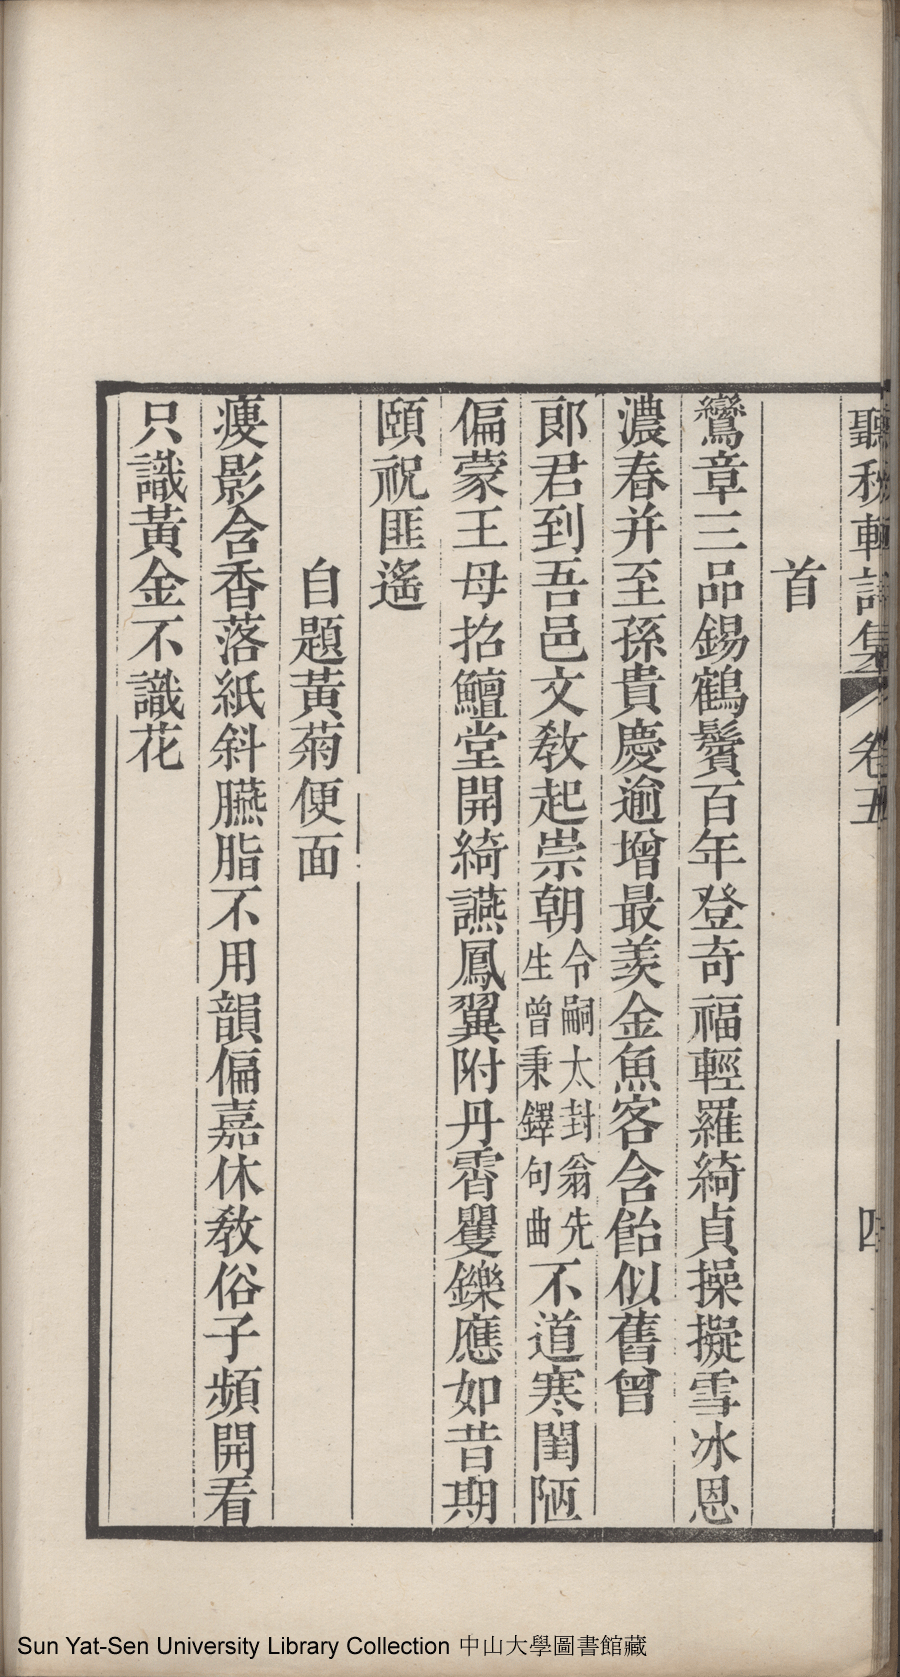 聽秋軒詩集 卷五 四
首
鸞章三品錫鶴鬢百年登奇福輕羅綺貞操擬雪冰恩
濃春并至孫貴慶逾增最羨金魚客含飴似舊曾
郎君到吾邑文教起崇朝令嗣太封翁先生曾秉鐸句曲不道寒閨陋
偏蒙王母招鱣堂開綺讌鳳翼附丹霄矍鑠應如昔期
頤祝匪遙
自題黃菊便面
瘦影含香落紙斜臙脂不用韻偏嘉休教俗子頻開看
只識黃金不識花
Sun Yat-Sen University Library Collection 中山大學圖書館藏